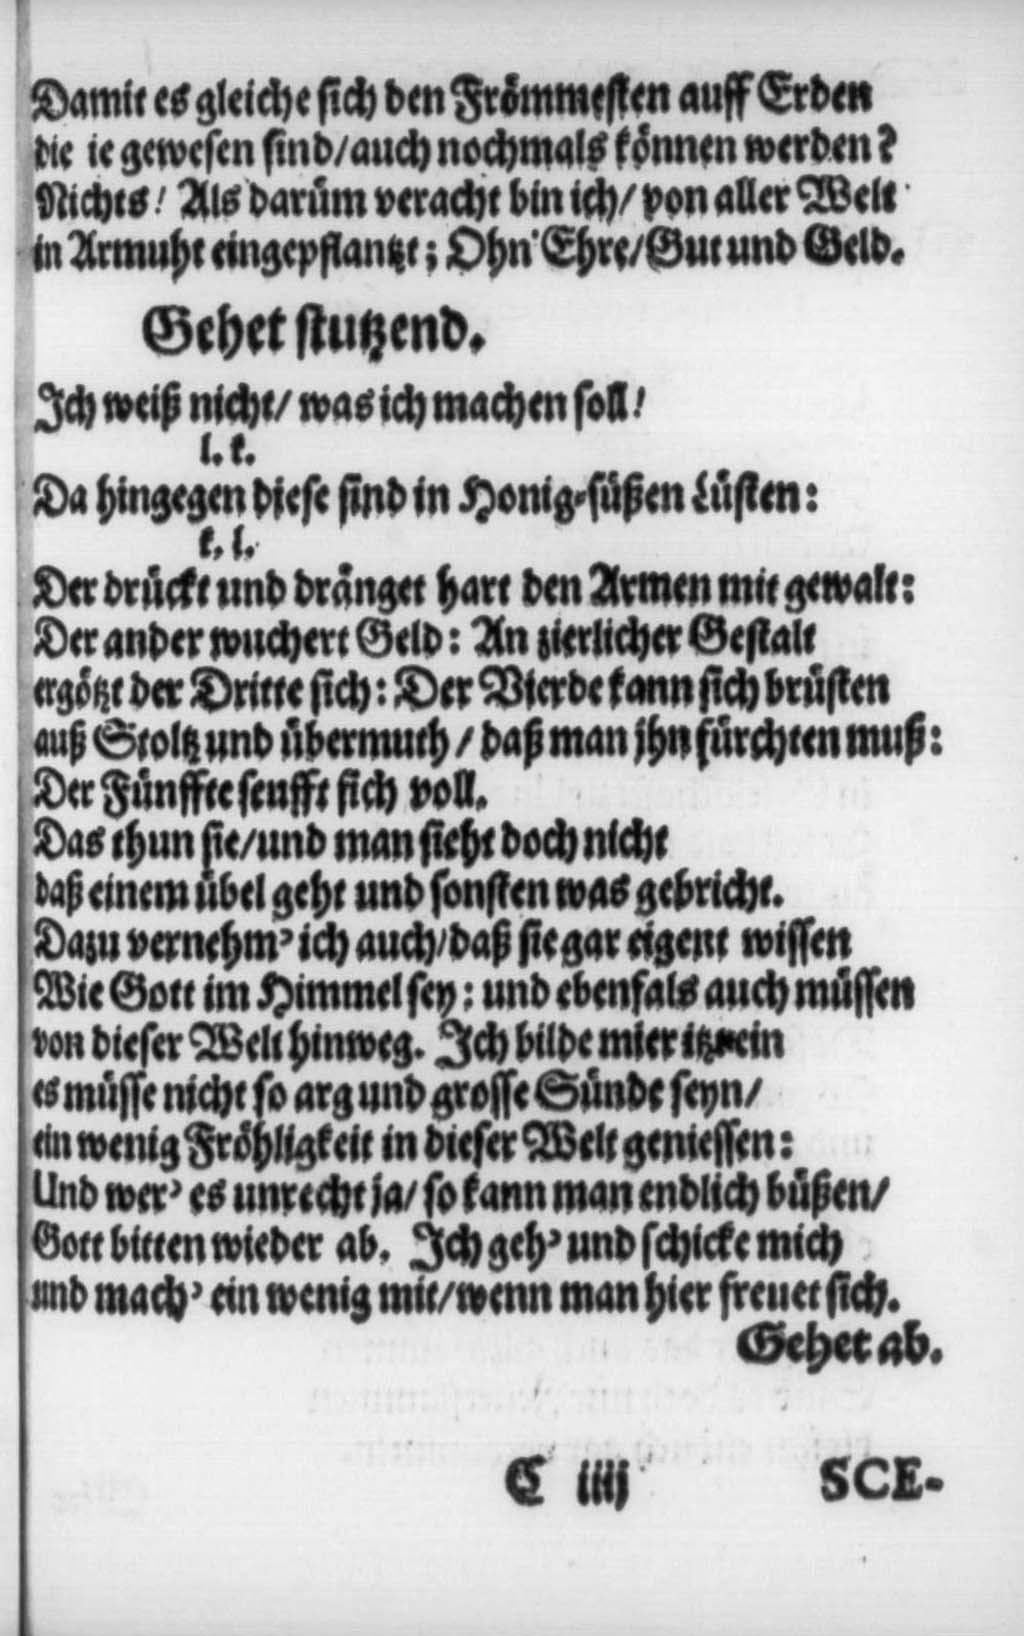 Damit es gleiche sich den Frömmesten auff Erden
die ie gewesen sind/auch nochmals können werden?
Nichts! Als darüm veracht bin ich/ von aller Welt
in Armuht eingepflantzt; Ohn' Ehre/Gut und Geld.
Gehet stutzend.
Ich weiß nicht/ was ich machen soll!
l. k.
Da hingegen diese sind in Honig-süßen Lüsten:
k. l.
Der drückt und dränget hart den Armen mit gewalt:
Der ander wuchert Geld: An zierlicher Gestalt
ergötzt der Dritte sich: Der Vierde kann sich brüsten
auß Stoltz und übermuth / daß man jhn fürchten muß:
Der Fünffte seufft sich voll.
Das thun sie/und man sieht doch nicht
daß einem übel geht und sonsten was gebricht.
Dazu vernehm' ich auch/daß sie gar eigent wissen
Wie Gott im Himmel sey: und ebenfals auch müssen
von dieser Welt hinweg. Ich bilde mier itzt ein
es müsse nicht so arg und grosse Sünde seyn/
ein wenig Fröhligkeit in dieser Welt geniessen:
Und wer' es unrecht ja/ so kann man endlich büßen/
Gott bitten wieder ab. Ich geh' und schicke mich
und mach' ein wenig mit/wenn man hier freuet sich.
Gehet ab.
C iiij SCE-